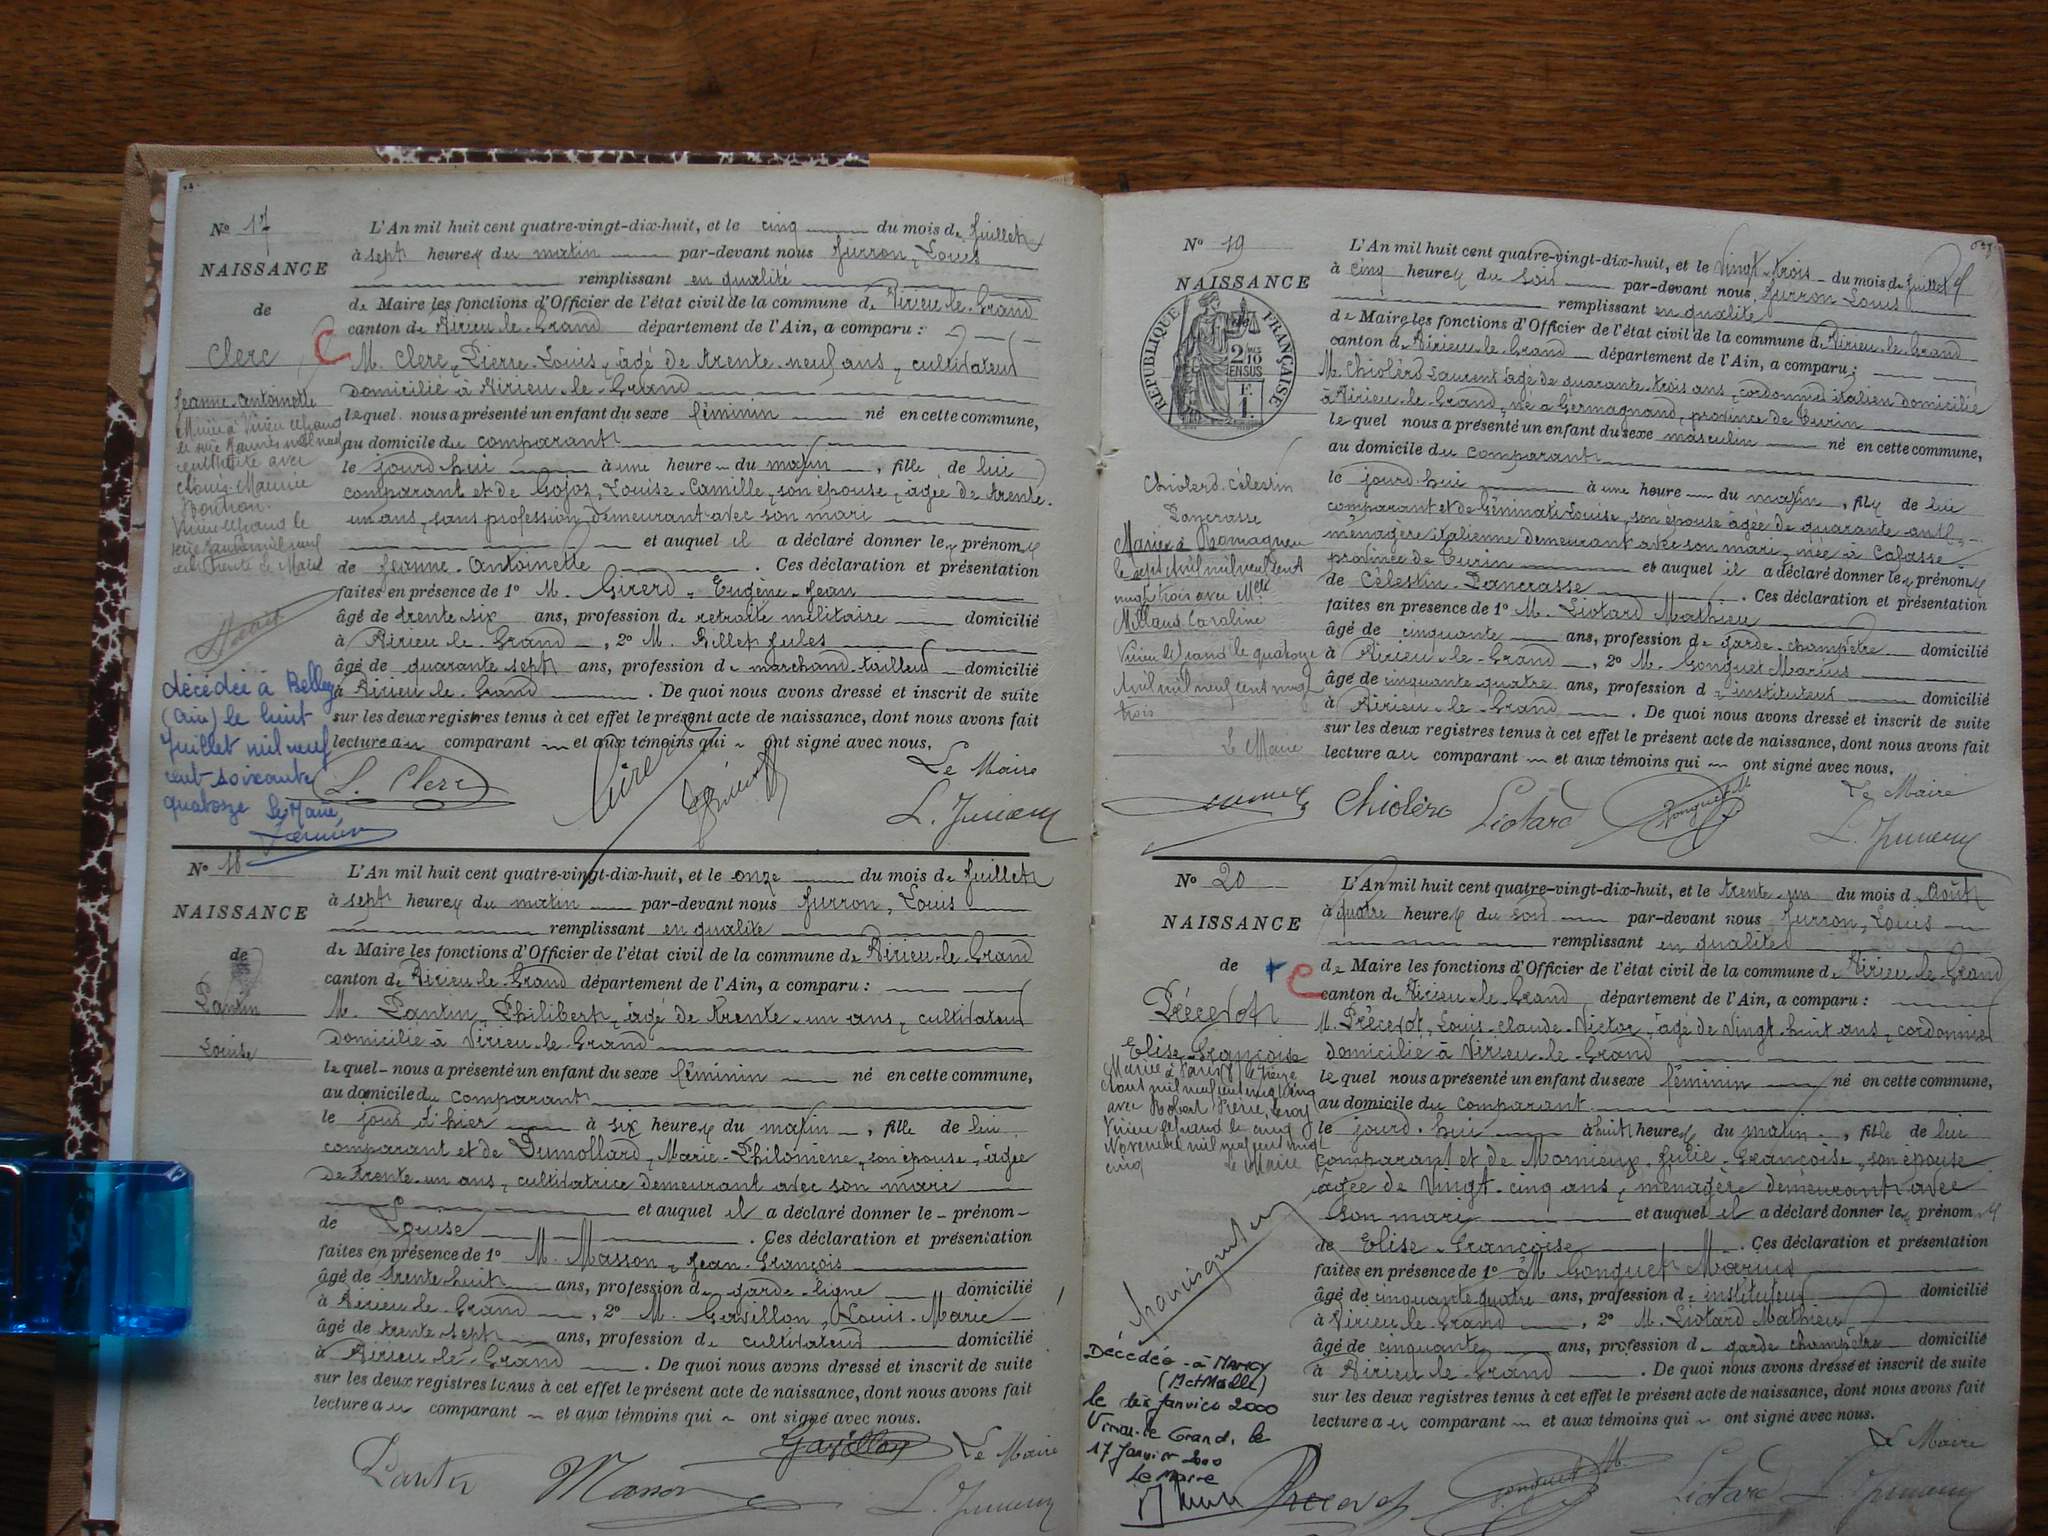 No 17
NAISSANCE
de
Clerc
Jeanne-Antoinette
Louis Maurice
décédée à Belley
(ain) le huit
juillet mil neuf
cent-soixante
quatorze Le Maire
L'An mil huit cent quatre-vingt-dix-huit, et le cinq du mois de Juillet
à sept heures du matin par-devant nous Jurron, Louis
remplissant en qualité
de Maire les fonctions d'Officier de l'état civil de la commune de Virieu-le-Grand
canton de Virieu-le-Grand département de l'Ain, a comparu :
M. Clerc, Pierre-Louis, âgé de trente-neuf ans, cultivateur
domicilié à Virieu-le-Grand
lequel nous a présenté un enfant du sexe féminin né en cette commune,
au domicile du comparant
le jourd'hui à une heure du matin, fille de lui
comparant et de Gojoz, Louise-Camille, son épouse, âgée de trente-
un ans, sans profession demeurant avec son mari
et auquel il a déclaré donner les prénoms
de Jeanne-Antoinette. Ces déclaration et présentation
faites en présence de 1o M. Girerd, Eugène-Jean
âgé de trente six ans, profession de retraité militaire domicilié
à Virieu-le-Grand, 2o M. Billet Jules
âgé de quarante sept ans, profession de marchand-tailleur domicilié
à Virieu-le-Grand. De quoi nous avons dressé et inscrit de suite
sur les deux registres tenus à cet effet le présent acte de naissance, dont nous avons fait
lecture au comparant et aux témoins qui ont signé avec nous.
L. Clerc
Le Maire
No 18
NAISSANCE
de
Pantin
Louise
L'An mil huit cent quatre-vingt-dix-huit, et le onze du mois de Juillet
à sept heures du matin par-devant nous Jurron, Louis
remplissant en qualité
de Maire les fonctions d'Officier de l'état civil de la commune de Virieu-le-Grand
canton de Virieu-le-Grand département de l'Ain, a comparu :
M. Pantin, Philibert, âgé de trente-un ans, cultivateur
domicilié à Virieu-le-Grand
lequel nous a présenté un enfant du sexe féminin né en cette commune,
au domicile du comparant
le jour d'hier à six heures du matin, fille de lui
comparant et de Dumollard, Marie-Philomène, son épouse, âgée
de trente-un ans, cultivatrice demeurant avec son mari
et auquel il a déclaré donner le prénom
de Louise. Ces déclaration et présentation
faites en présence de 1o M. Masson, Jean-François
âgé de trente huit ans, profession de garde-ligne domicilié
à Virieu-le-Grand, 2o M. Gavillon, Louis-Marie
âgé de trente sept ans, profession de cultivateur domicilié
à Virieu-le-Grand. De quoi nous avons dressé et inscrit de suite
sur les deux registres tenus à cet effet le présent acte de naissance, dont nous avons fait
lecture au comparant et aux témoins qui ont signé avec nous.
Gavillon Le Maire
Pantin Masson
No 19
NAISSANCE
RÉPUBLIQUE FRANÇAISE
Chiolero Célestin
Pancrasse
Marié à Romagnieu
le sept Avril mil neuf cent
vingt trois avec Melle
Millaud Caroline
Virieu le Grand le quatorze
Avril mil neuf cent vingt
trois
Le Maire
L'An mil huit cent quatre-vingt-dix-huit, et le Vingt-trois du mois de Juillet
à cinq heures du soir par-devant nous Jurron Louis
remplissant en qualité
de Maire les fonctions d'Officier de l'état civil de la commune de Virieu-le-Grand
canton de Virieu-le-Grand département de l'Ain, a comparu :
M. Chioléro Laurent âgé de quarante-trois ans, cordonnier italien domicilié
à Virieu-le-Grand, né à Germagnano, province de Turin
lequel nous a présenté un enfant du sexe masculin né en cette commune,
au domicile du comparant
le jourd'hui à une heure du matin, fils de lui
comparant et de Géninati Louise, son épouse âgée de quarante ans,
ménagère italienne demeurant avec son mari, née à Cafasse
province de Turin et auquel il a déclaré donner les prénoms
de Célestin-Pancrasse. Ces déclaration et présentation
faites en présence de 1o M. Liotard Mathieu
âgé de cinquante ans, profession de garde-champêtre domicilié
à Virieu-le-Grand, 2o M. Gonguet Marius
âgé de cinquante-quatre ans, profession d'instituteur domicilié
à Virieu-le-Grand. De quoi nous avons dressé et inscrit de suite
sur les deux registres tenus à cet effet le présent acte de naissance, dont nous avons fait
lecture au comparant et aux témoins qui ont signé avec nous.
Chioléro Liotard Le Maire
No 20
NAISSANCE
de
Précevot
Elise-Françoise
Mariée à Nancy le treize
Août mil neuf cent vingt cinq
avec Robert Pierre Leroy
Virieu le Grand le cinq
Novembre mil neuf cent vingt
cinq le Maire
Décédée à NANCY
(M et Mselle)
le dix janvier 2000
Virieu-le-Grand, le
17 Janvier 2000
Le Maire
L'An mil huit cent quatre-vingt-dix-huit, et le trente-un du mois d'Août
à quatre heures du soir par-devant nous Jurron, Louis
remplissant en qualité
de Maire les fonctions d'Officier de l'état civil de la commune de Virieu-le-Grand
canton de Virieu-le-Grand département de l'Ain, a comparu :
M. Précevot, Louis-Claude-Victor, âgé de vingt-huit ans, cordonnier
domicilié à Virieu-le-Grand
lequel nous a présenté un enfant du sexe féminin né en cette commune,
au domicile du comparant
le jourd'hui à huit heures du matin, fille de lui
comparant et de Mornieux Julie-Françoise, son épouse
âgée de vingt-cinq ans, ménagère demeurant avec
son mari et auquel il a déclaré donner les prénoms
de Elise-Françoise. Ces déclaration et présentation
faites en présence de 1o M. Gonguet Marius
âgé de cinquante-quatre ans, profession d'instituteur domicilié
à Virieu-le-Grand, 2o M. Liotard Mathieu
âgé de cinquante ans, profession de garde champêtre domicilié
à Virieu-le-Grand. De quoi nous avons dressé et inscrit de suite
sur les deux registres tenus à cet effet le présent acte de naissance, dont nous avons fait
lecture au comparant et aux témoins qui ont signé avec nous.
Le Maire
Precevot Liotard